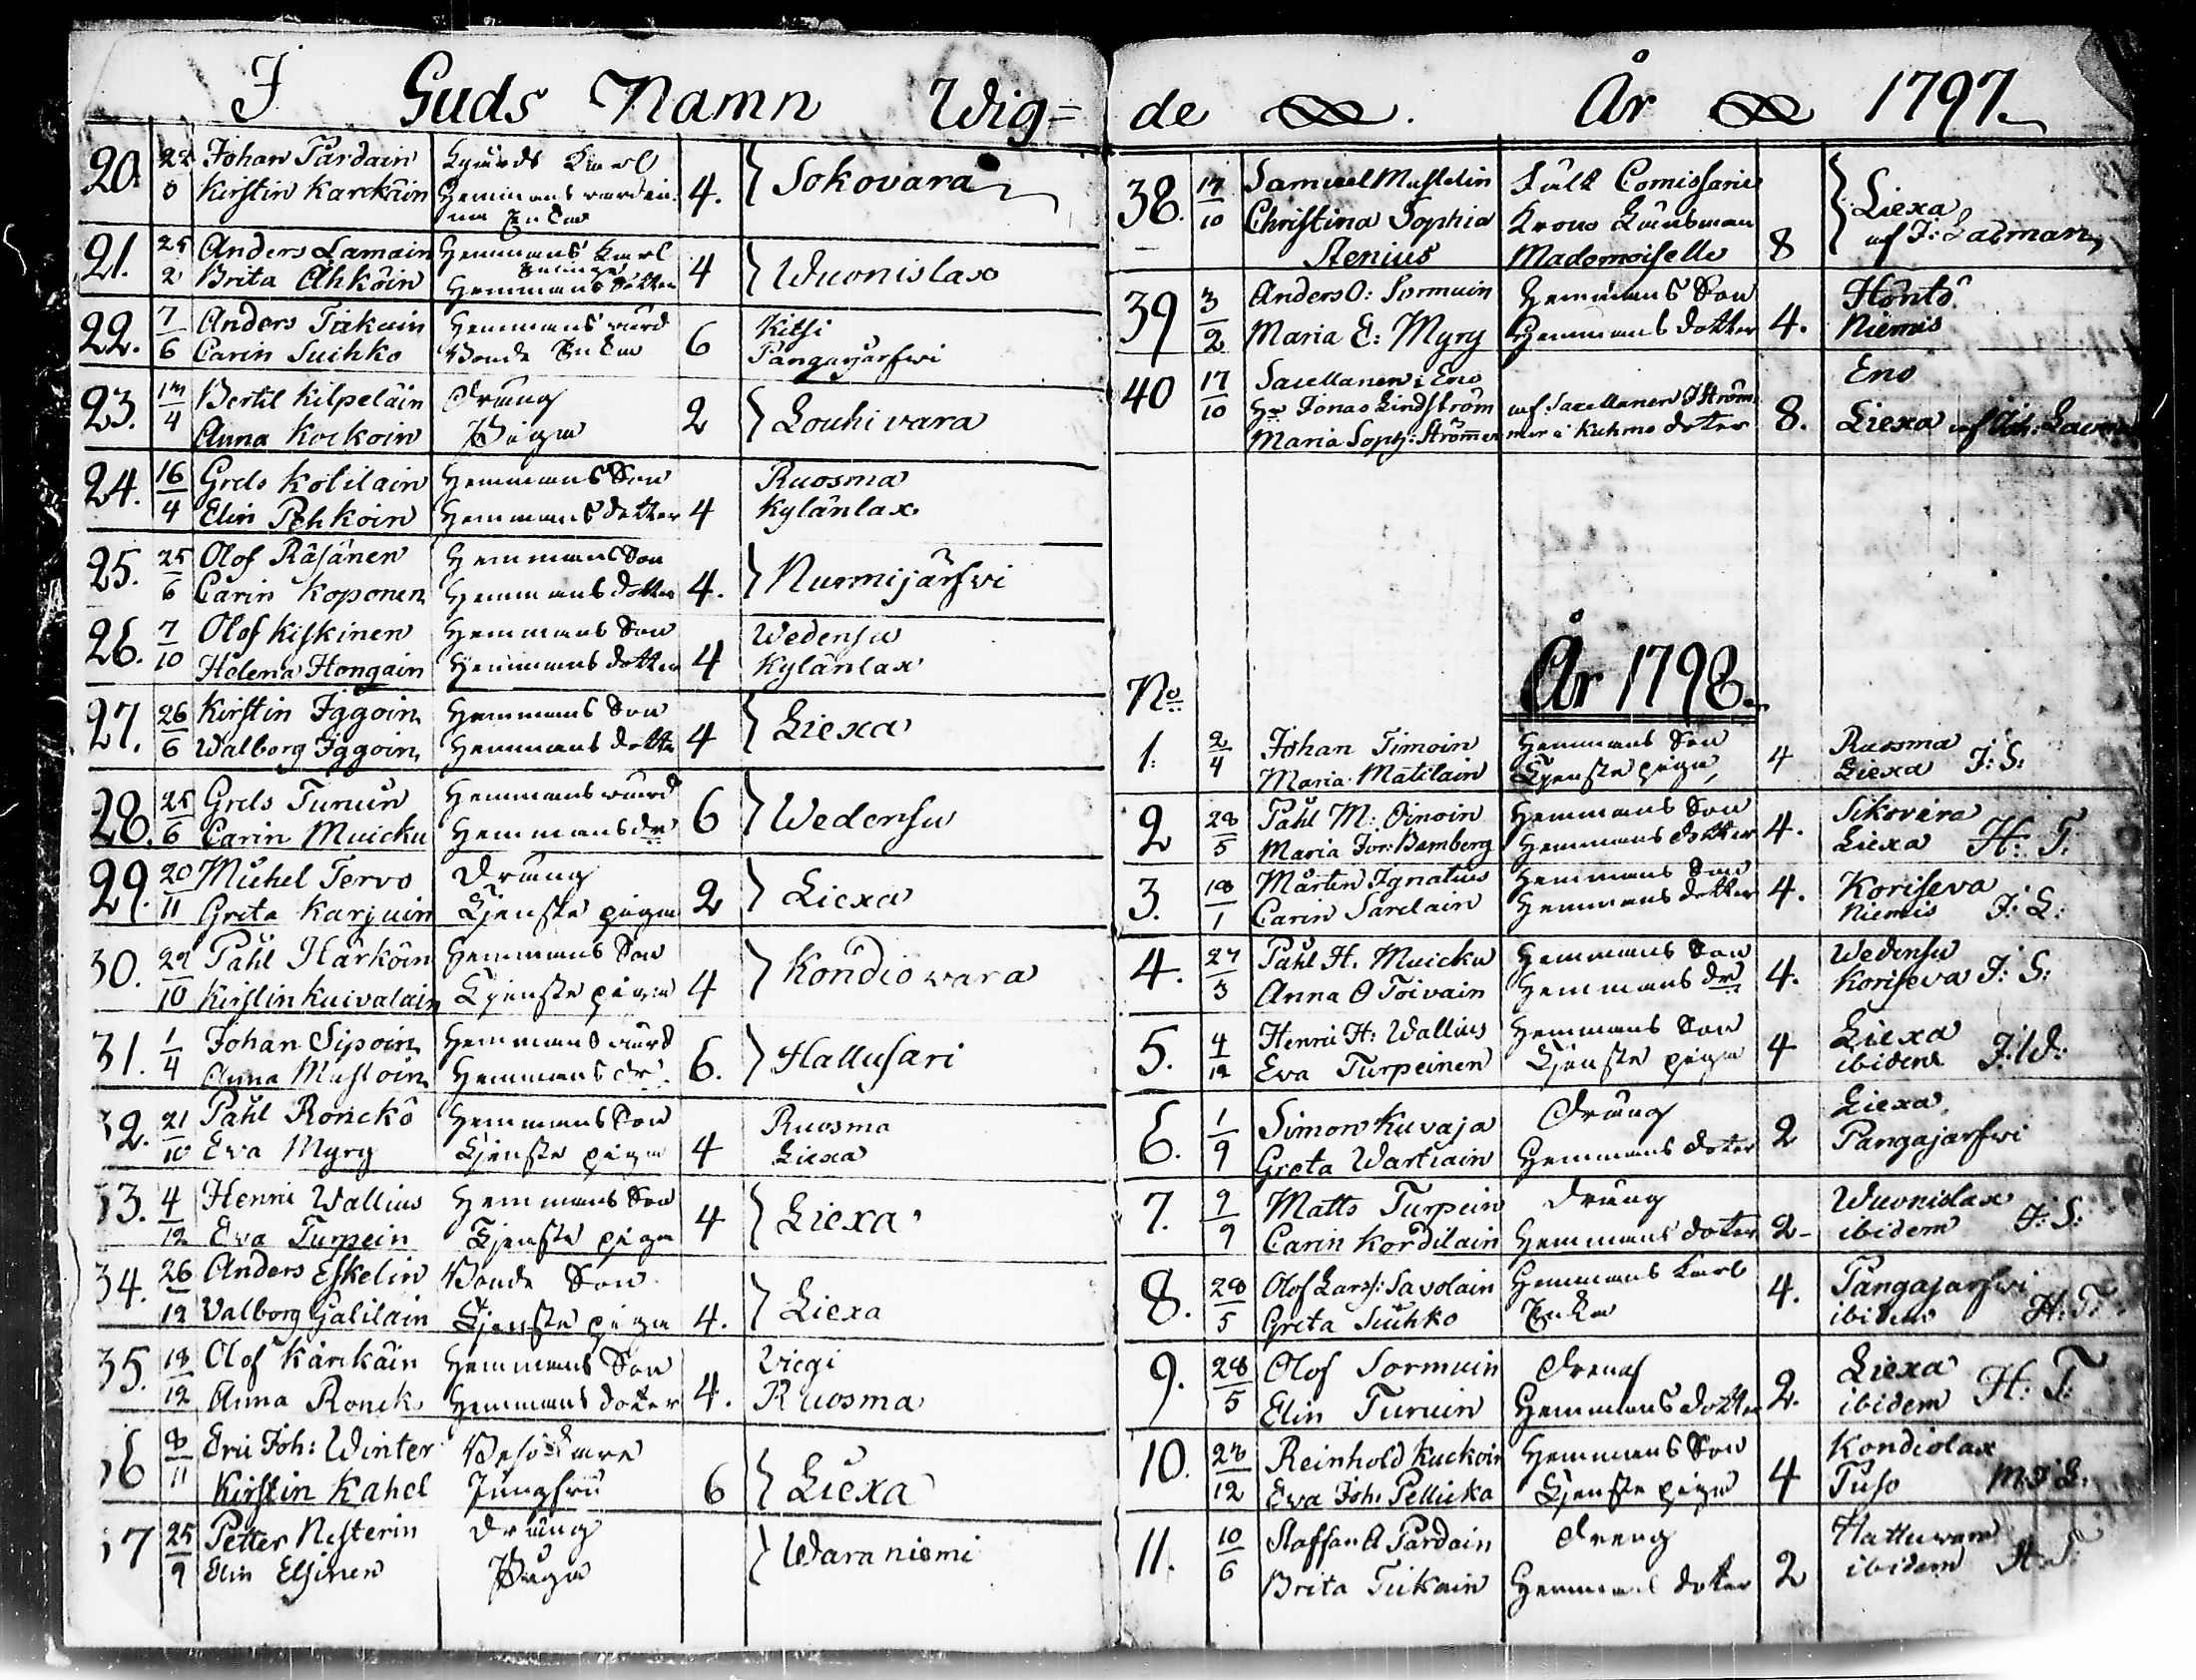 I Guds Namn Wig=
20. 22 Johan Pardain Karl
8 Kirstin Karckäin Hemmans 4. } Sokovara
Enka
21. 25 Anders Lamain Hemmans Karl
2 Brita Ahköin Hemmans dotter 4 } Wuonislax
22. 7 Anders Hemmans wärd Kitsi
6 Carin Suihko Bonde Enka 6 Pangajärfwi
23. Bertil Kilpeläin Dräng
4 Anna Kockoin Piga 2 } Louhivara
24. 16 Grels Kolilain Hemmans Son Ruosma
4 Elin Pehkoin Hemmans dotter 4 Kylänlax
25. 25 Olof Räsänen Hemmans Son
6 Carin Koponen Hemmans dotter 4. } Nurmijärfwi
26. 7 Olof Kiskinen Hemmans Son Wedensu
10 Helena Hongain Hemmans dotter 4 Kylänlax
27. 26 Kirstin Iggoin Hemmans Son
6 Walborg Iggoin Hemmans dotter 4 } Liexa
28. 25 Grels Turuin Hemmans wärd
6 Carin Muicku Hemmans dr 6 } Wedensu
29. 20 Michel Tervo Dräng
11 Greta Karjuin Tjenste piga 2 } Liexa
30. 22 Påhl Härköin Hemmans Son
10 Kirstin Kuivalain Tjenste piga 4 } Kondiowara
31. 1 Johan Sipoin Hemmans wärd
4 Anna Mustoin Hemmans dr. 6. } Hallusari
32. 21 Påhl Ronckö Hemmans Son Ruosma
10 Eva Myry Tjenste piga 4 Liexa
33. 4 Henric Wallius Hemmans Son
12 Eva Turpein Tjenste piga 4 } Liexa
34. 26 Anders Eskelin Bonde Son
12 Valborg Galilain Tjenste piga 4. } Liexa
35. 18 Olof Karckäin Hemmans Son Viegi
12 Anna Ronck Hemmans doter 4. Ruosma
36 8 Eric Joh: Winter Besökare
11 Kirstin Kahel Jungfru 6 } Liexa
37 25 Petter Nesterin Dräng
9 Elin Elsinen Piga } Waraniemi
de År 1797.
38. 17 Samuel Mustelin Fält Comissarie
10 Christina Sophia Krono Länsman } Liexa
Stenius Mademoiselle 8 af J: Lacman
39 3 Anders O: Sormuin Hemmans Son Höntö
2 Maria E: Myry Hemmans dotter 4. Niemis
40 17 Sacellanen i Eno Eno
10 Hr Jonas Lindström af Sacellanen J Ström
Maria Soph: Strömmer mer i Kuhmo doter 8. Liexa af Joh: Lacman
År 1798.
No
1. 2 Johan Timoin Hemmans Son 4 Ruosma
4 Maria Matilain Tjenste piga Liexa J: S:
2 28 Påhl M: Oinoin Hemmans Son Sikovara
5 Maria Jor: Bamberg Hemmans dotter 4. Liexa H: T:
3. 18 Mårten Ignatius Hemmans Son Koriseva
1 Carin Sarelain Hemmans dotter 4. Niemis J: L:
4. 27 Påhl H. Muicku Hemmans Son Wedensu
3 Anna O Toivain Hemmans dr 4. Koriseva J: S:
5. 4 Henric H: Wallius Hemmans Son Liexa
12 Eva Turpeinen Tjenste piga 4 ibidem J: W:
6. 1 Simon Kuvaja Dräng Liexa
9 Greta Wartiain Hemmans doter 2 Pangajarfwi
7. 9 Matts Turpein Dräng Wuonislax
9 Carin Kordilain Hemmans doter 2 ibidem J: S:
8. 28 Olof Larss: Savolain Hemmans Karl Pangajarfwi
5 Greta Suihko Enka 4. ibidem H: T:
9. 28 Olof Sormuin Dreng Liexa
5 Elin Turuin Hemmans dotter 2. ibidem H: T:
10. 28 Reinhold Kuckoin Hemmans Son Kondiolax
12 Eva Joh: Pellicka Tjenste piga 4 Tuso
11. 10 Staffan A Pardain Dreng Hattuwara
6 Brita Tiikain Hemmans doter 2 ibidem H: T: